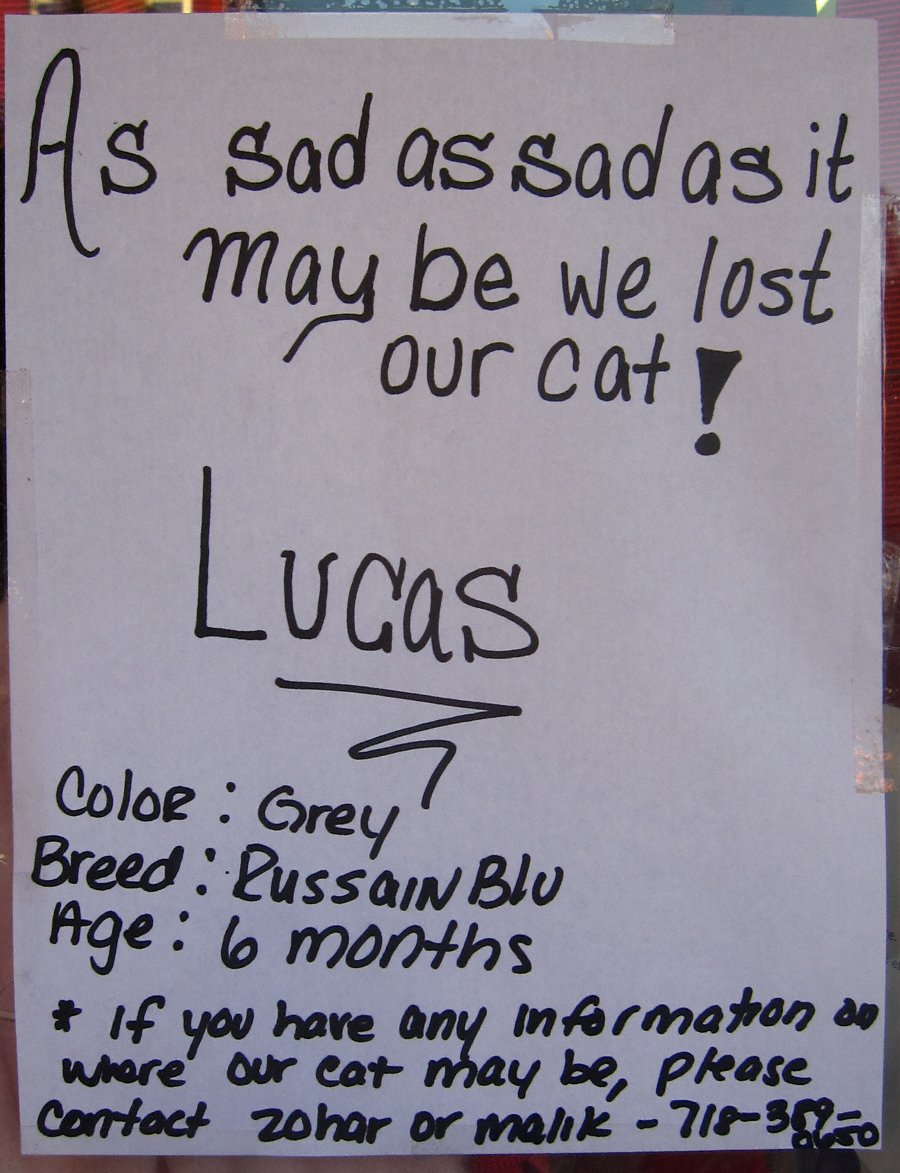 As sad as sad as it
may be we lost
our cat!
Lucas
Color: Grey
Breed: Russain Blu
Age: 6 months
* If you have any information on
where our cat may be, please
contact zohar or malik - 718-389-
0650